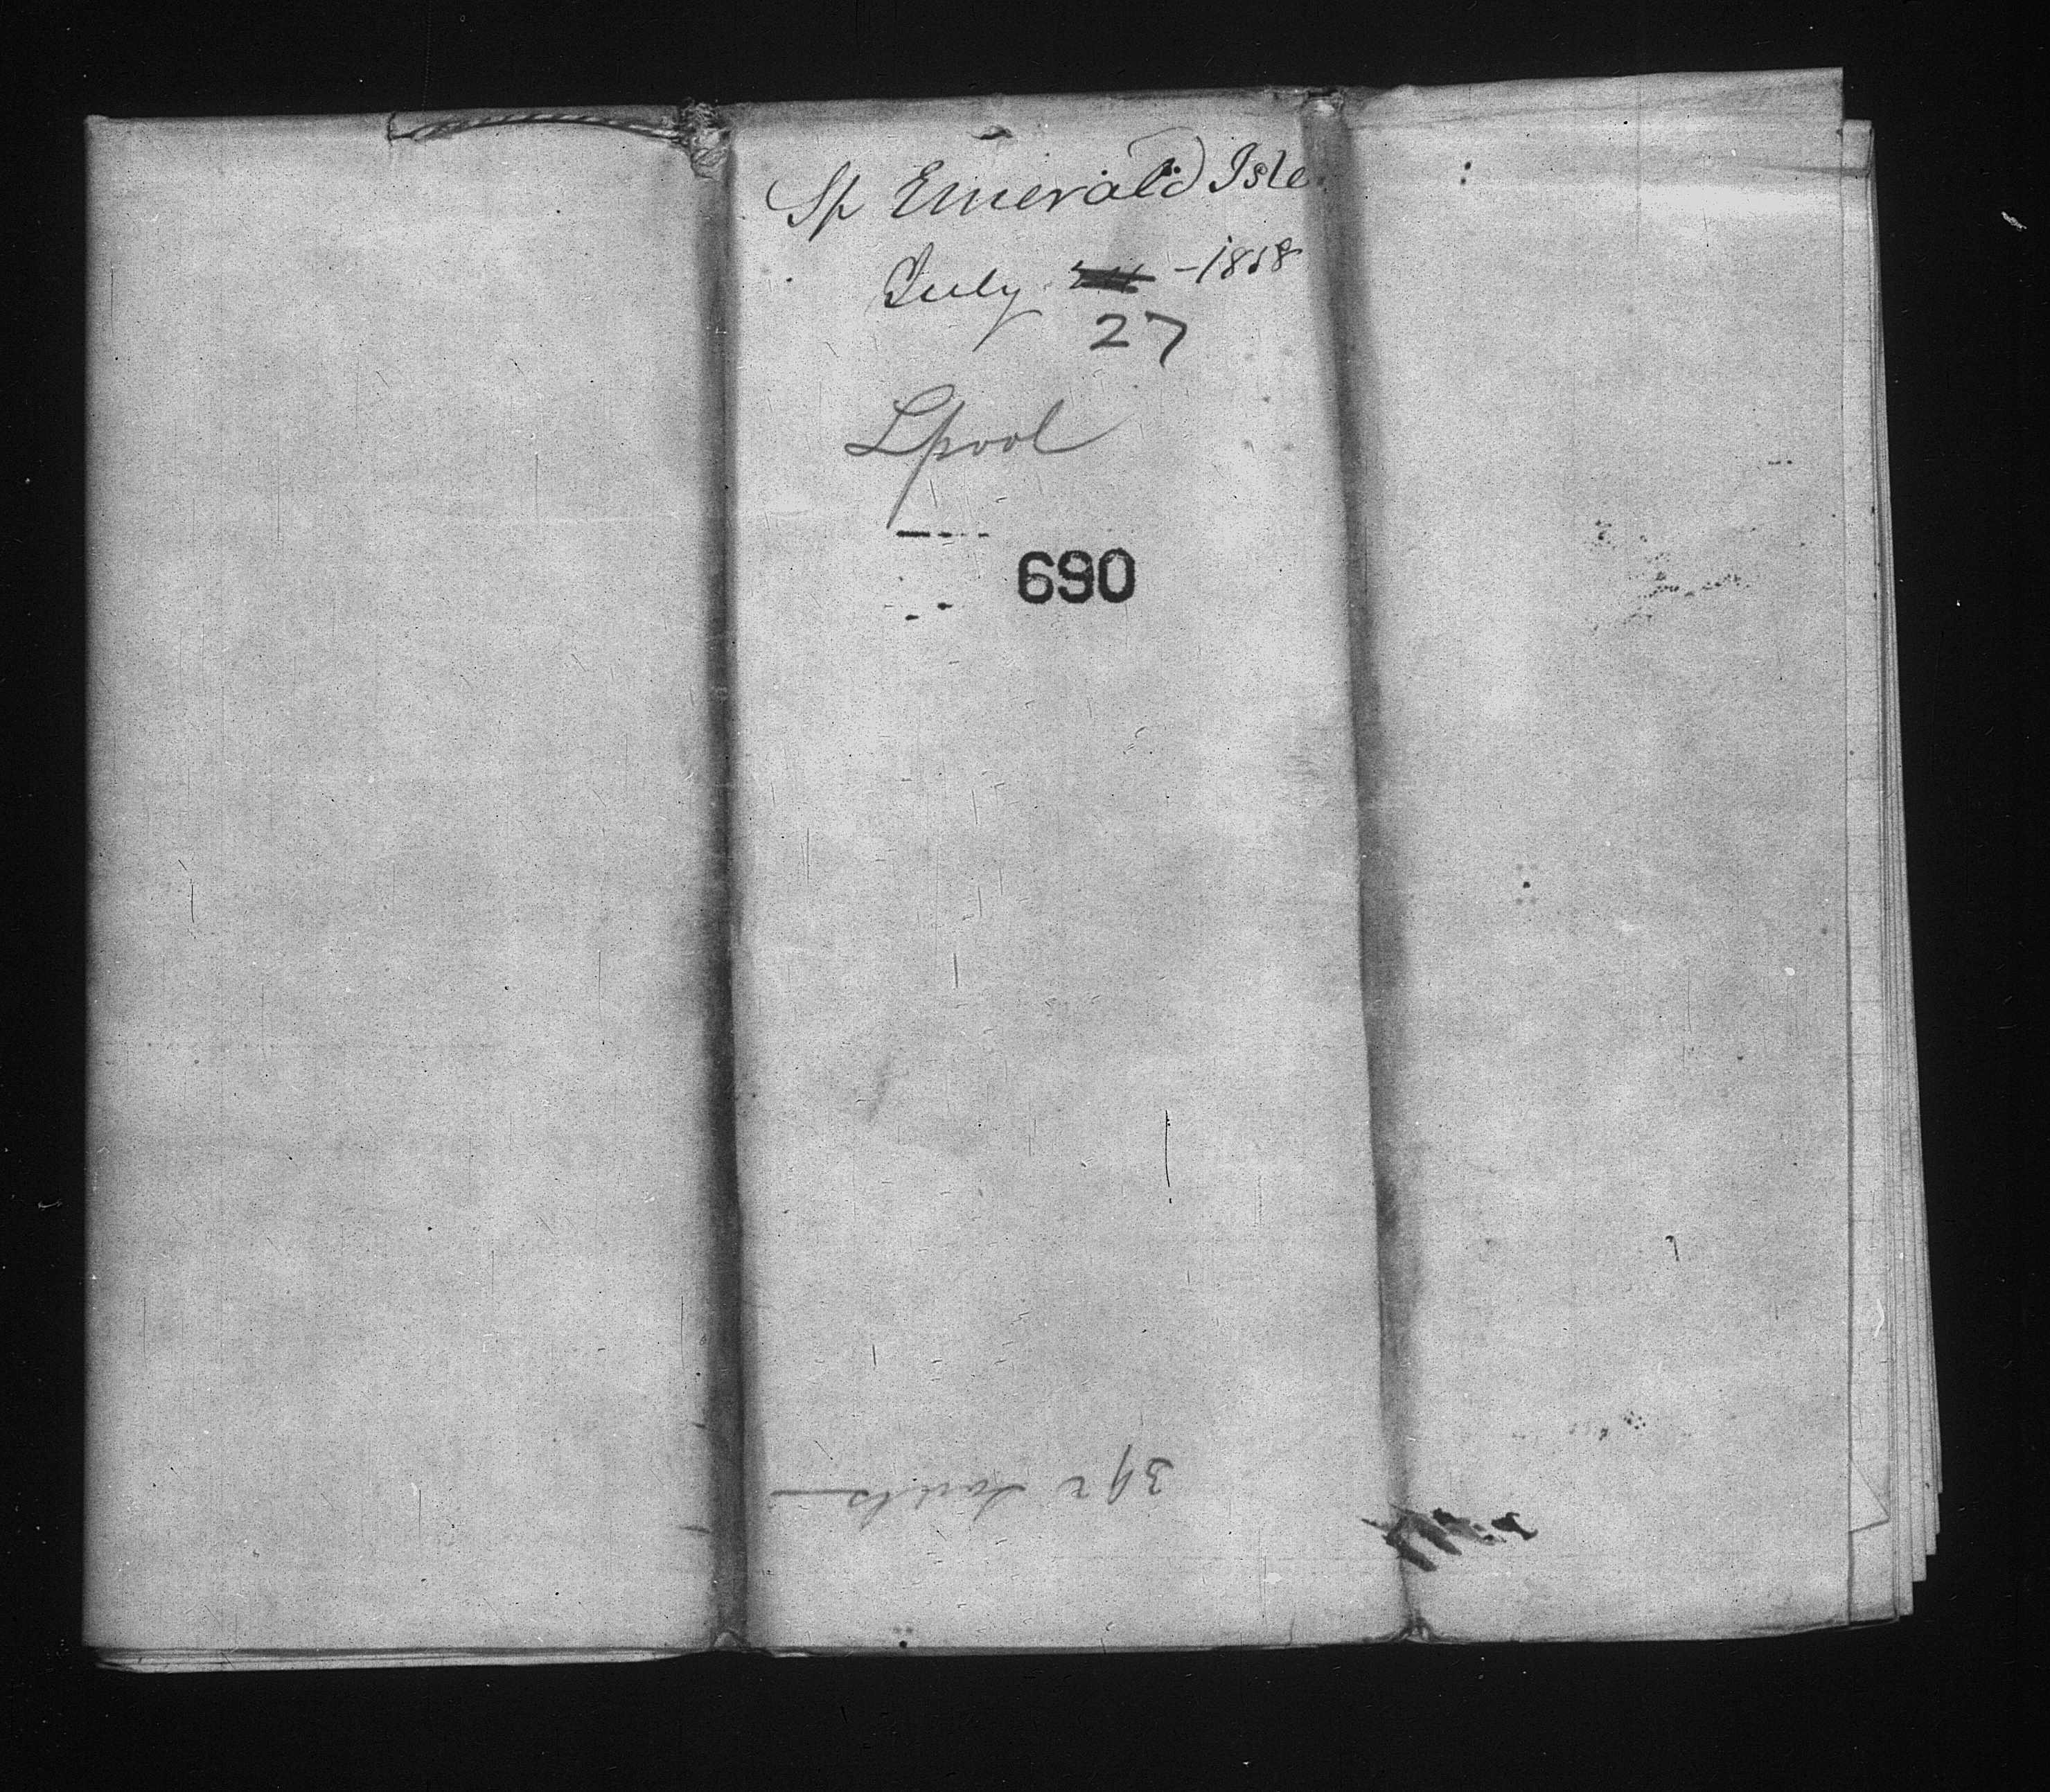 Sp Emerald Isle.
July -1858
27
Lpool
690
392